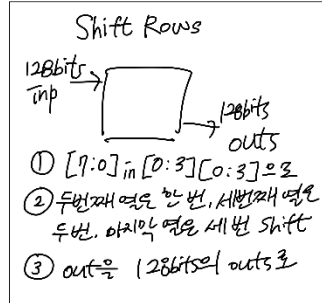 Shift Rows
128bits
inp
128bits
outs
① [7:0] in [0:3][0:3]으로
② 두번째 열은 한 번, 세번째 열은
두번, 마지막 열은 세 번 shift
③ out을 128bits의 outs로